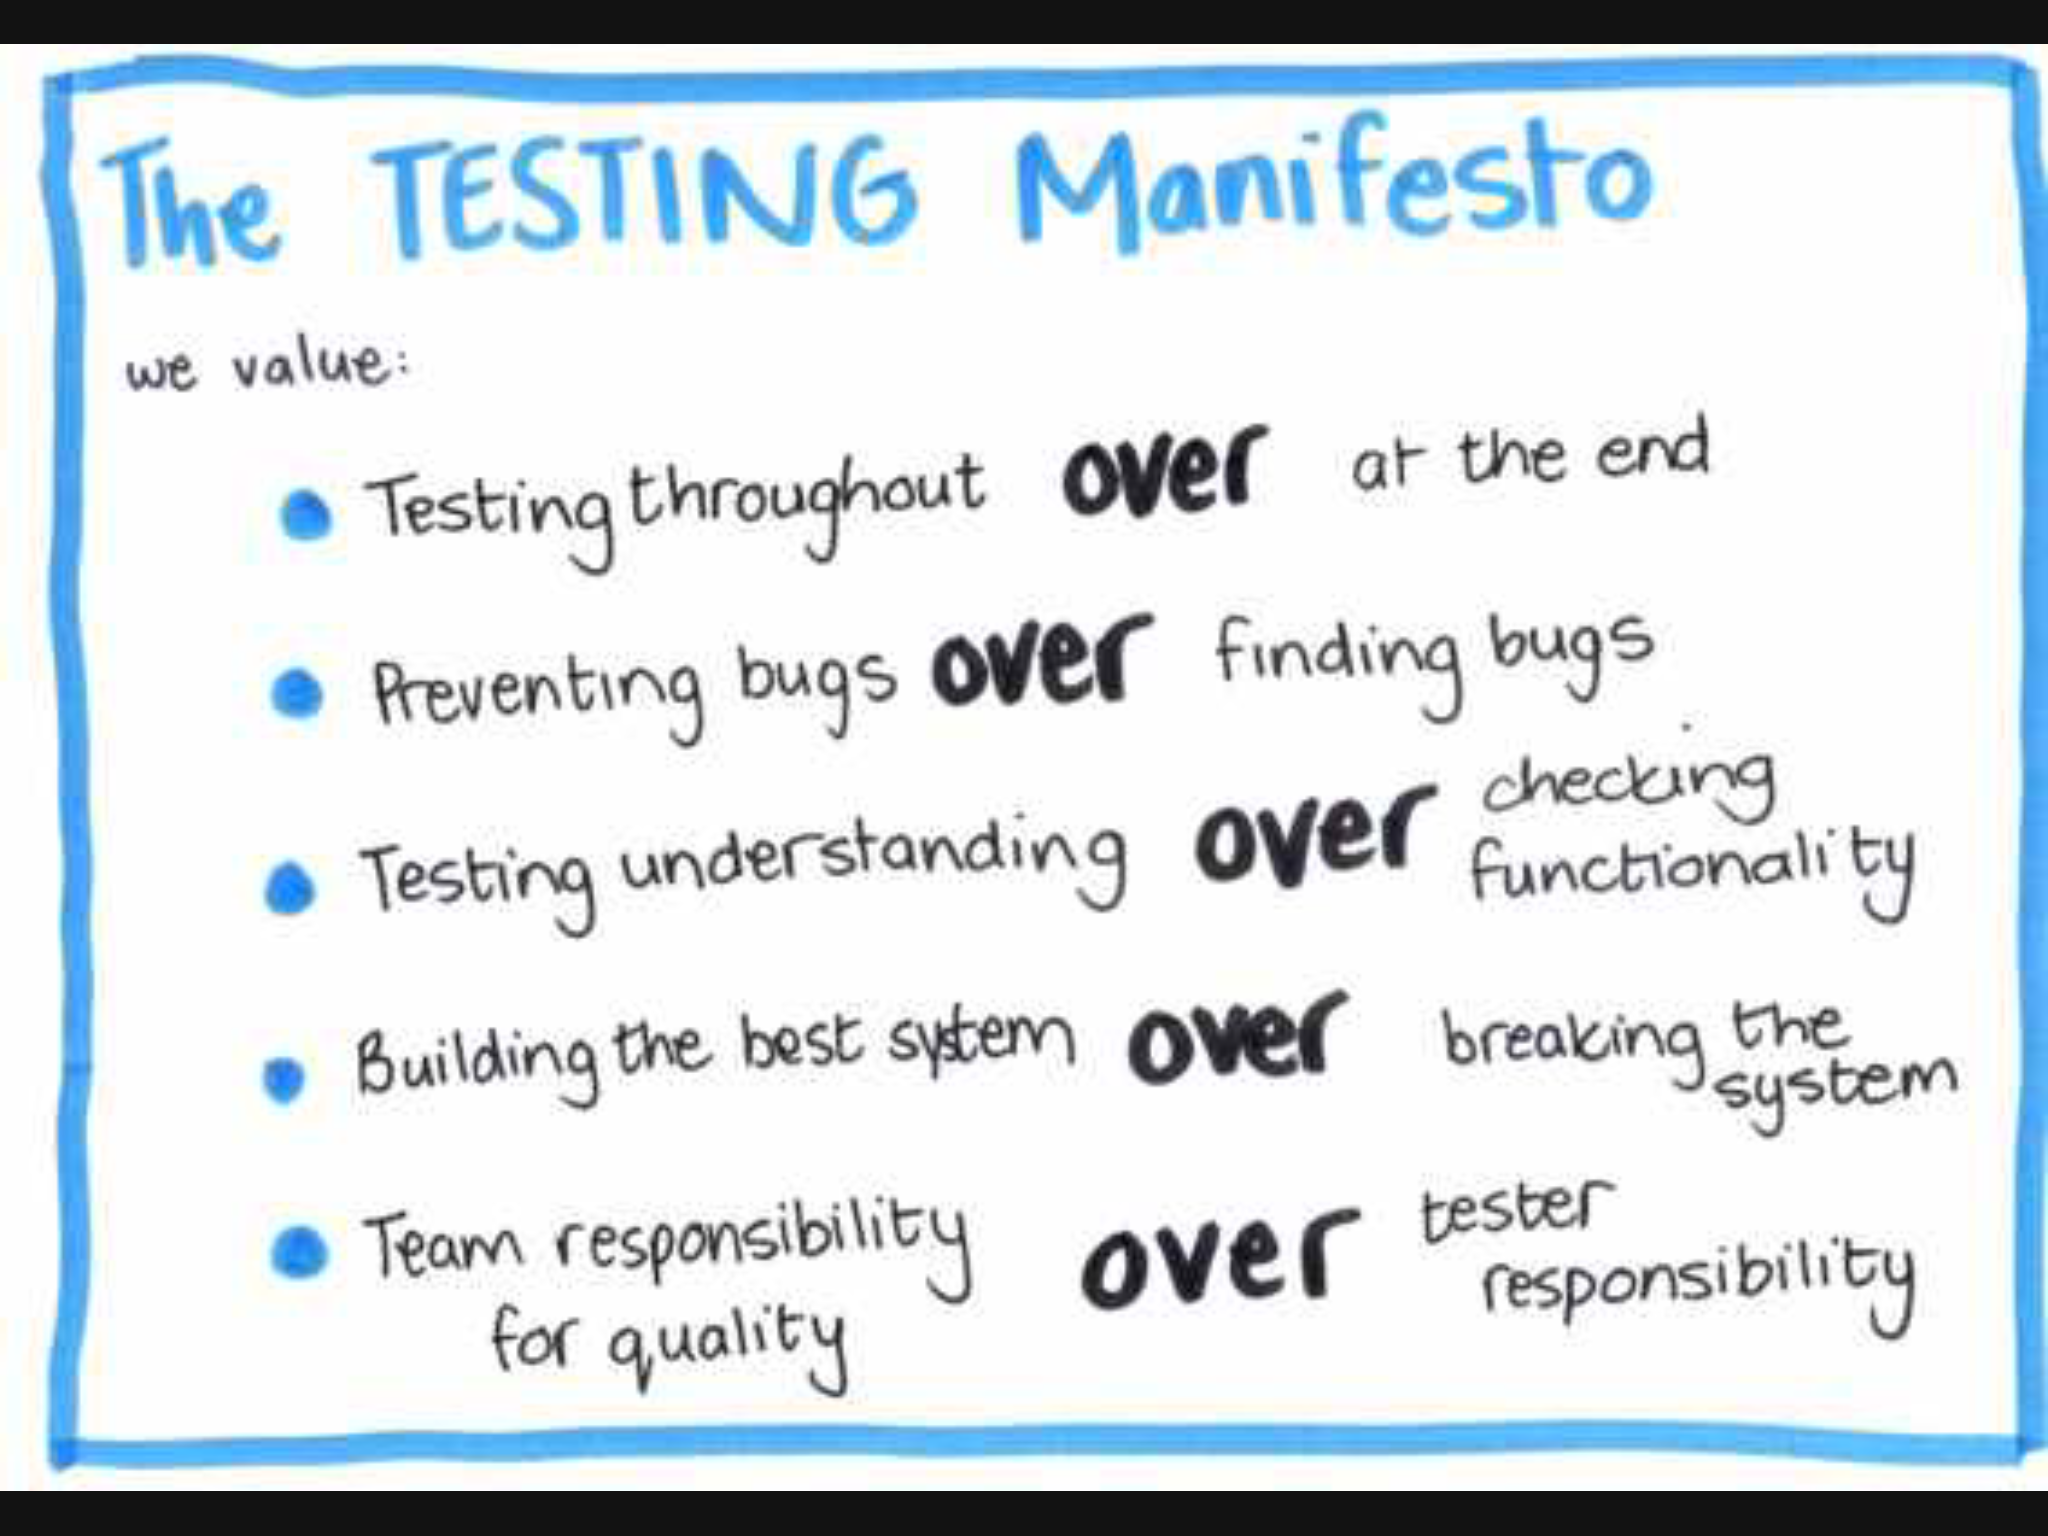 The TESTING Manifesto
we value:
Testing throughout over at the end
Preventing bugs over finding bugs
Testing understanding over checking
functionality
Building the best system over breaking the
system
Team responsibility over tester
for quality responsibility